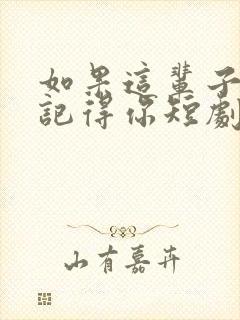 如果這輩子
記得你短劇
山有嘉卉